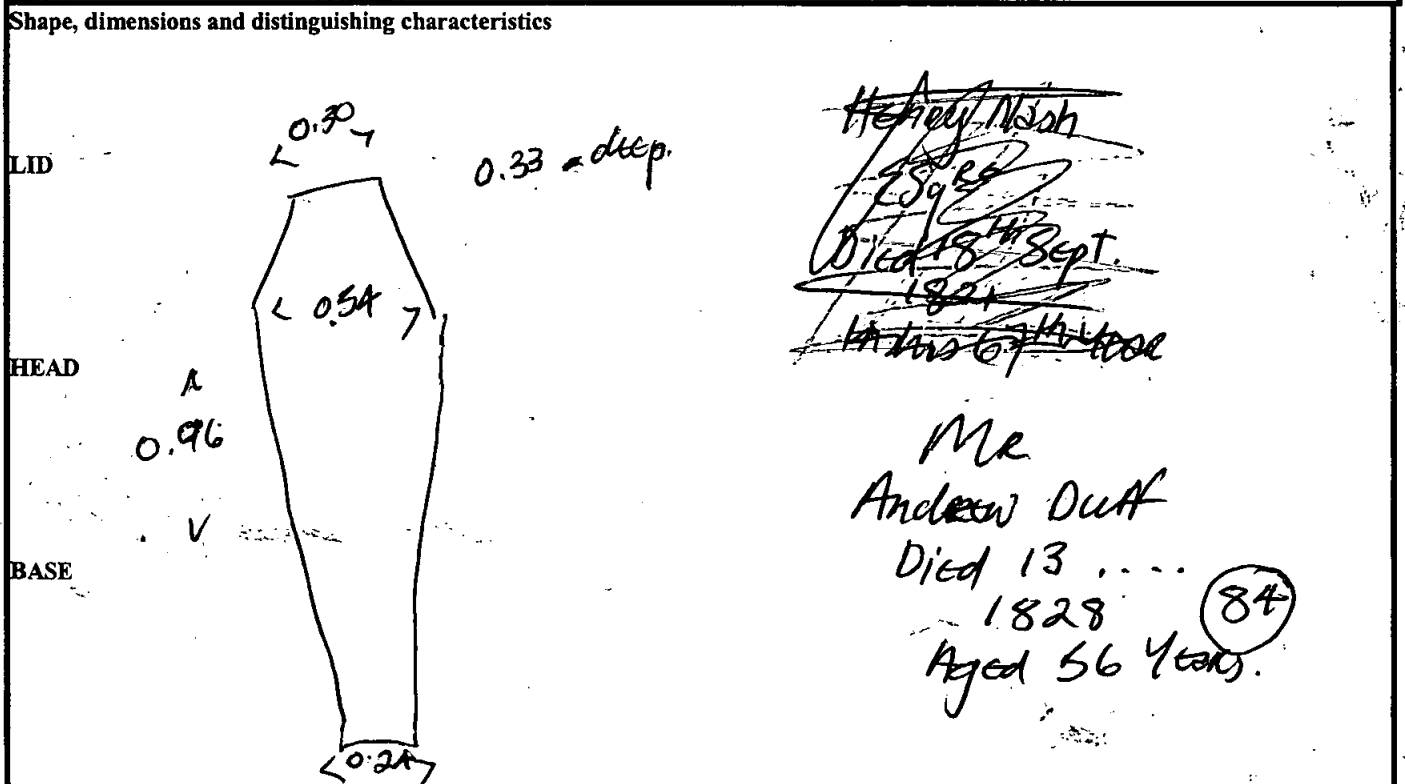 Shape, dimensions and distinguishing characteristics
0.30
LID
0.33 - deep.
0.54
HEAD
0.96
BASE
0.24
Henry Nash
ESqRE
Died 18TH Sept.
1821
In his 67th Year
MR
Andrew Duff
Died 13 ....
1828
84
Aged 56 Years.